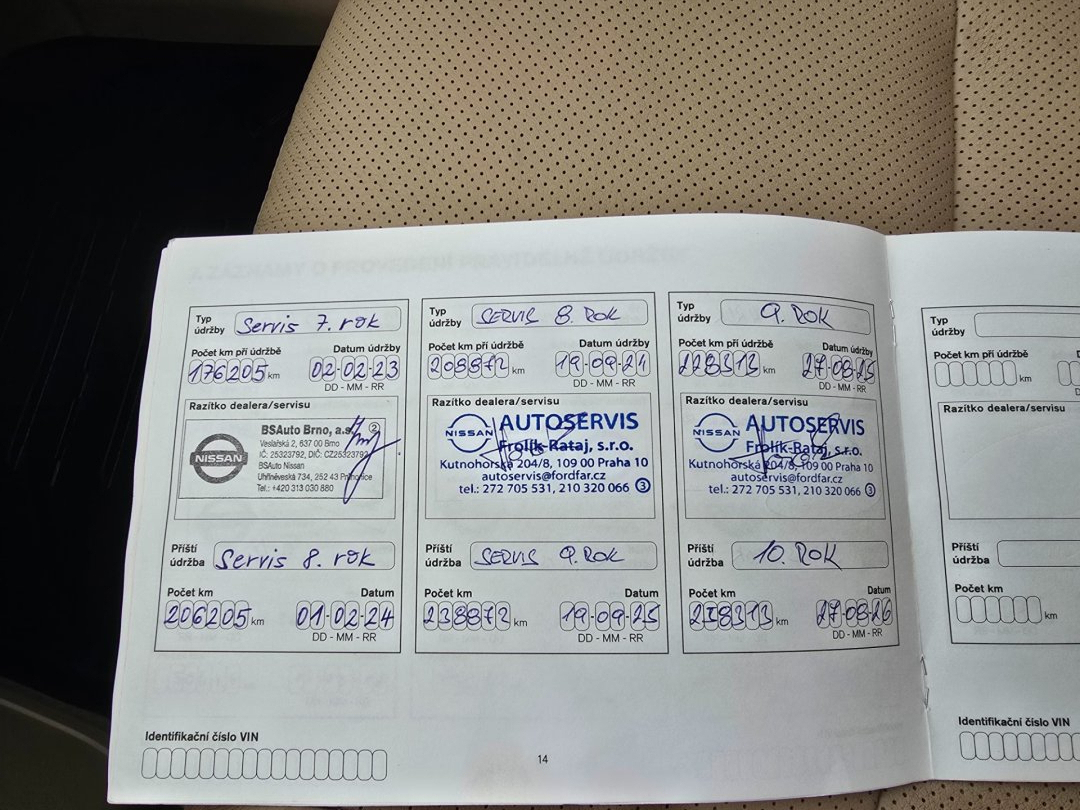 Typ údržby Servis 7. rok
Počet km při údržbě Datum údržby
176205 km 02-02-23
DD - MM - RR
Razítko dealera/servisu
NISSAN
BSAuto Brno, a.s. 2
Veslařská 2, 637 00 Brno
IČ: 25323792, DIČ: CZ25323792
BSAuto Nissan
Uhříněveská 734, 252 43 Průhonice
Tel.: +420 313 030 880
Příští údržba Servis 8. rok
Počet km Datum
206205 km 01-02-24
DD - MM - RR
Typ údržby SERVIS 8. ROK
Počet km při údržbě Datum údržby
208872 km 19-09-24
DD - MM - RR
Razítko dealera/servisu
NISSAN AUTOSERVIS
Frolík-Rataj, s.r.o.
Kutnohorská 204/8, 109 00 Praha 10
autoservis@fordfar.cz
tel.: 272 705 531, 210 320 066 3
Příští údržba SERVIS 9. ROK
Počet km Datum
238872 km 19-09-25
DD - MM - RR
Typ údržby 9. ROK
Počet km při údržbě Datum údržby
228313 km 27-08-25
DD - MM - RR
Razítko dealera/servisu
NISSAN AUTOSERVIS
Frolík-Rataj, s.r.o.
Kutnohorská 204/8, 109 00 Praha 10
autoservis@fordfar.cz
tel.: 272 705 531, 210 320 066 3
Příští údržba 10. ROK
Počet km Datum
258313 km 27-08-26
DD - MM - RR
Identifikační číslo VIN
14
Typ údržby
Počet km při údržbě
km
Razítko dealera/servisu
Příští údržba
Počet km
km
Identifikační číslo VIN